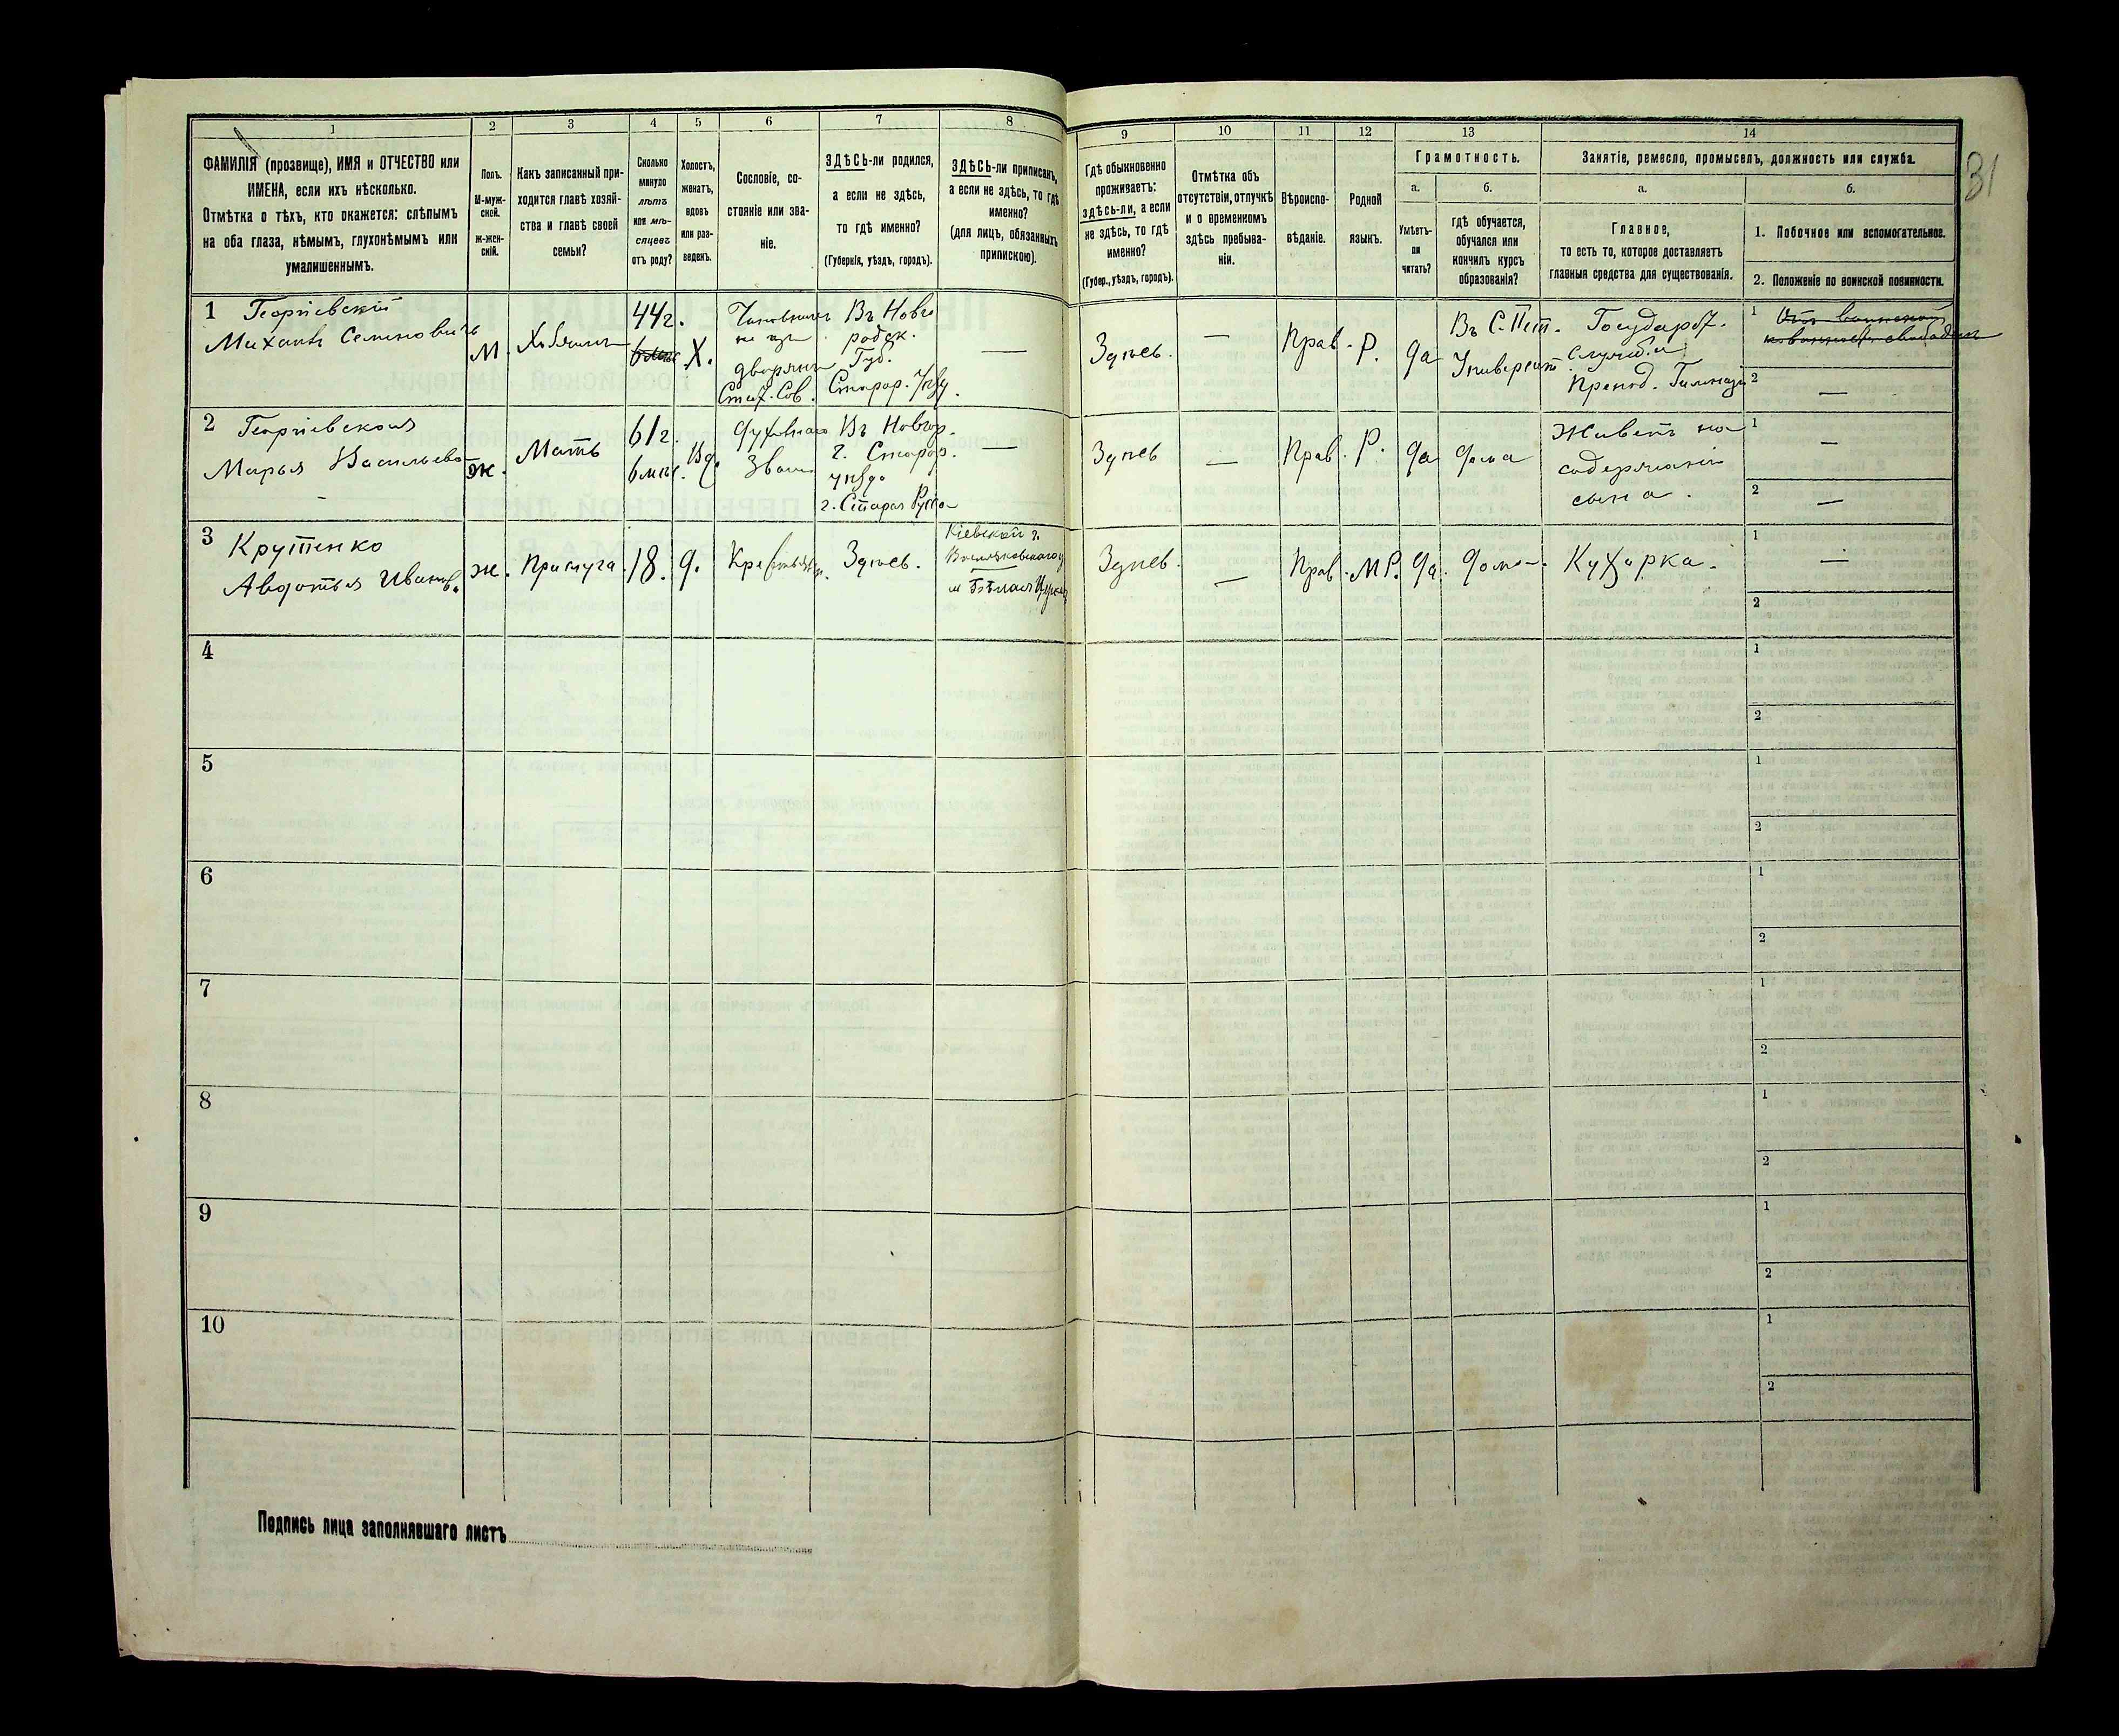 1
2
3
4
5
6
7
8
ФАМИЛІЯ (прозвище), ИМЯ и ОТЧЕСТВО или
ИМЕНА, если ихъ нѣсколько.
Отмѣтка о тѣхъ, кто окажется: слѣпымъ
на оба глаза, нѣмымъ, глухонѣмымъ или
умалишеннымъ.
Полъ.
М-муж-
ской.
Ж-жен-
скій.
Какъ записанный при-
ходится главѣ хозяй-
ства и главѣ своей
семьи?
Сколько
минуло
лѣтъ
или мѣ-
сяцевъ
отъ роду?
Холостъ,
женатъ,
вдовъ
или раз-
веденъ.
Сословіе, со-
стояніе или зва-
ніе.
ЗДѢСЬ-ли родился,
а если не здѣсь,
то гдѣ именно?
(Губернія, уѣздъ, городъ).
ЗДѢСЬ-ли приписанъ,
а если не здѣсь, то гдѣ
именно?
(для лицъ, обязанныхъ
припискою).
9
10
11
12
13
14
Гдѣ обыкновенно
проживаетъ:
здѣсь-ли, а если
не здѣсь, то гдѣ
именно?
(Губер., уѣздъ, городъ).
Отмѣтка объ
отсутствіи, отлучкѣ
и о временномъ
здѣсь пребыва-
ніи.
Вѣроиспо-
вѣданіе.
Родной
языкъ.
Грамотность.
а.
б.
Умѣетъ-
ли
читать?
гдѣ обучается,
обучался или
кончилъ курсъ
образованія?
Занятіе, ремесло, промыселъ, должность или служба.
а.
б.
Главное,
то есть то, которое доставляетъ
главныя средства для существованія.
1. Побочное или вспомогательное.
2. Положеніе по воинской повинности.
31
1 Георгіевскій
Михаилъ Семеновичъ
М.
Хозяинъ
44г.
Х.
Чиновникъ
не изъ
дворянъ
Стат. Сов.
Въ Новго
родск.
Губ.
Старор. Уѣзд.
—
Здѣсь.
—
Прав.
Р.
да
Въ С. Пет.
Университ.
Государст.
службы
Препод. Гимназіи
1 Отъ воинской
повинност. свободенъ
2 —
2 Георгіевская
Марья Васильева
Ж.
Мать
61г.
6 мѣс.
Вд.
духовнаго
званія
Въ Новгор.
г. Старор.
уѣзда
г. Старая Русса
—
Здѣсь
—
Прав.
Р.
да
дома
Живетъ на
содержаніи
сына.
1 —
2 —
3 Крутенко
Авдотья Иванов.
Ж.
Прислуга
18.
д.
Крестьянк.
Здѣсь.
Кіевской г.
Васильковскаго у.
м Бѣлая Церковь
Здѣсь.
—
Прав.
МР.
да.
дома.
Кухарка.
1 —
2
4
1
2
5
1
2
6
1
2
7
1
2
8
1
2
9
1
2
10
1
2
Подпись лица заполнявшаго листъ